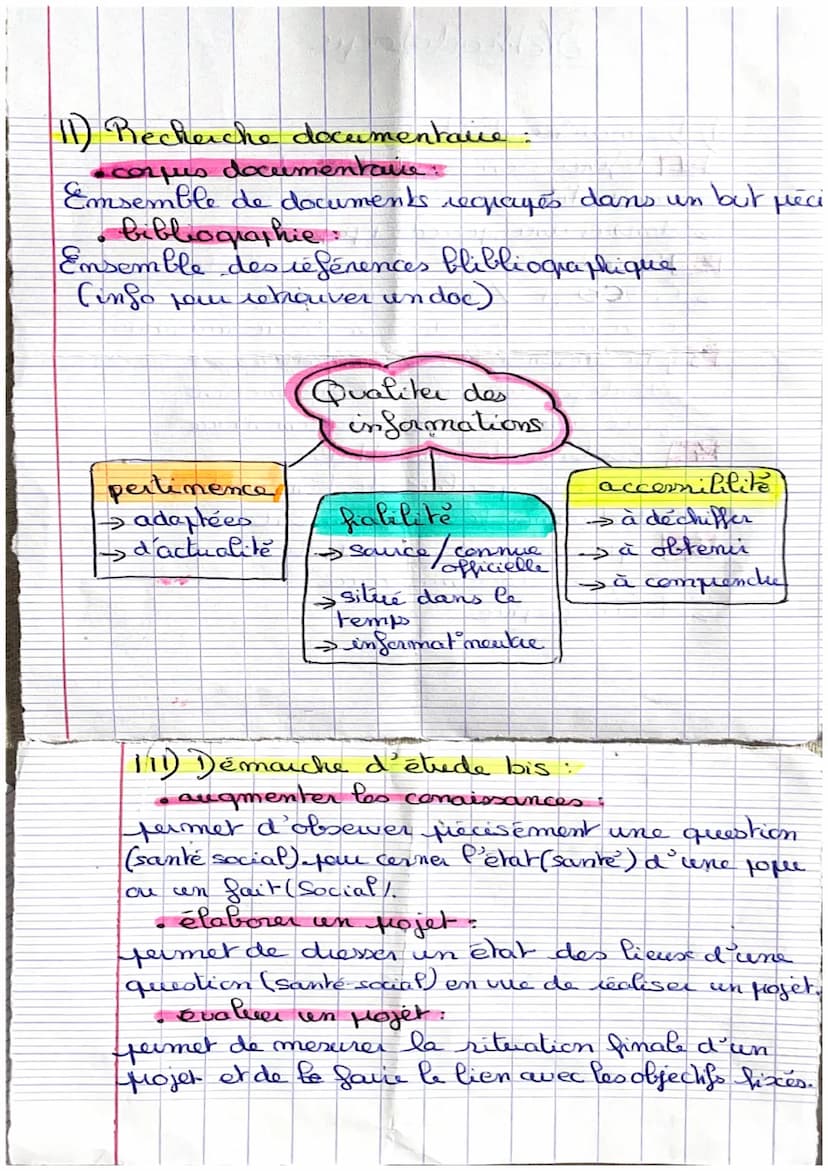 II) Recherche documentaire :
• corpus documentaire :
Emsemble de documents regrayés dans un but préci
• bibliographie :
Ensemble des références blibliographique
(info pour retrouver un doc)
Qualiter des
informations
pertinence
→ adaptées
→ d'actualité
fiabilité
→ source/connue
officielle
→ situé dans le
temps
→ informat° neutre
accessibilité
→ à déchiffer
→ à obtenir
→ à comprendre
III) Démarche d'étude bis :
• augmenter les conaissances :
permet d'observer précisément une question
(santé social) pour cerner l'état (santé) d'une popu
ou un fait (social).
• élaborer un projet :
permet de dresser un état des lieux d'une
question (santé-social) en vue de réaliser un projet.
• évaluer un projet :
permet de mesurer la situation finale d'un
projet et de faire le lien avec les objectifs fixés.